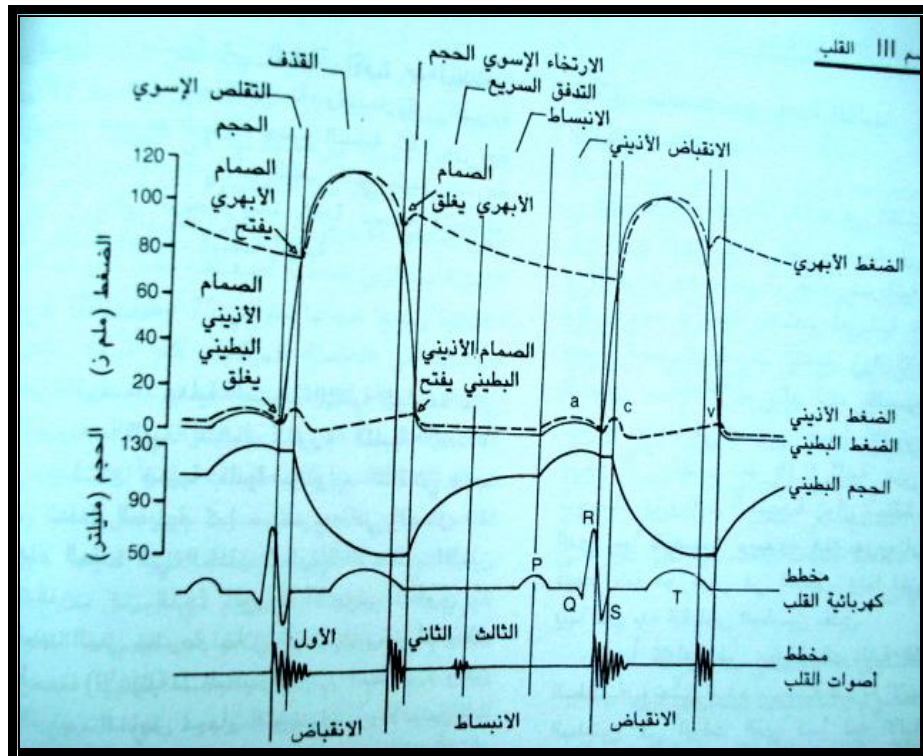 م III القلب
الارتخاء الإسوي الحجم
القذف
التدفق السريع
التقلص الإسوي
الحجم
الانبساط
الانقباض الأذيني
الصمام
الأبهري
يفتح
الصمام
الأبهري يغلق
الصمام
الأذيني
البطيني
يغلق
الصمام الأذيني
البطيني يفتح
الضغط (ملم ز)
120
100
80
60
40
20
0
الحجم (مليلتر)
130
90
50
a
c
v
الضغط الأبهري
الضغط الأذيني
الضغط البطيني
الحجم البطيني
R
P
Q
S
T
مخطط
كهربائية القلب
الأول
الثاني
الثالث
مخطط
أصوات القلب
الانقباض
الانبساط
الانقباض